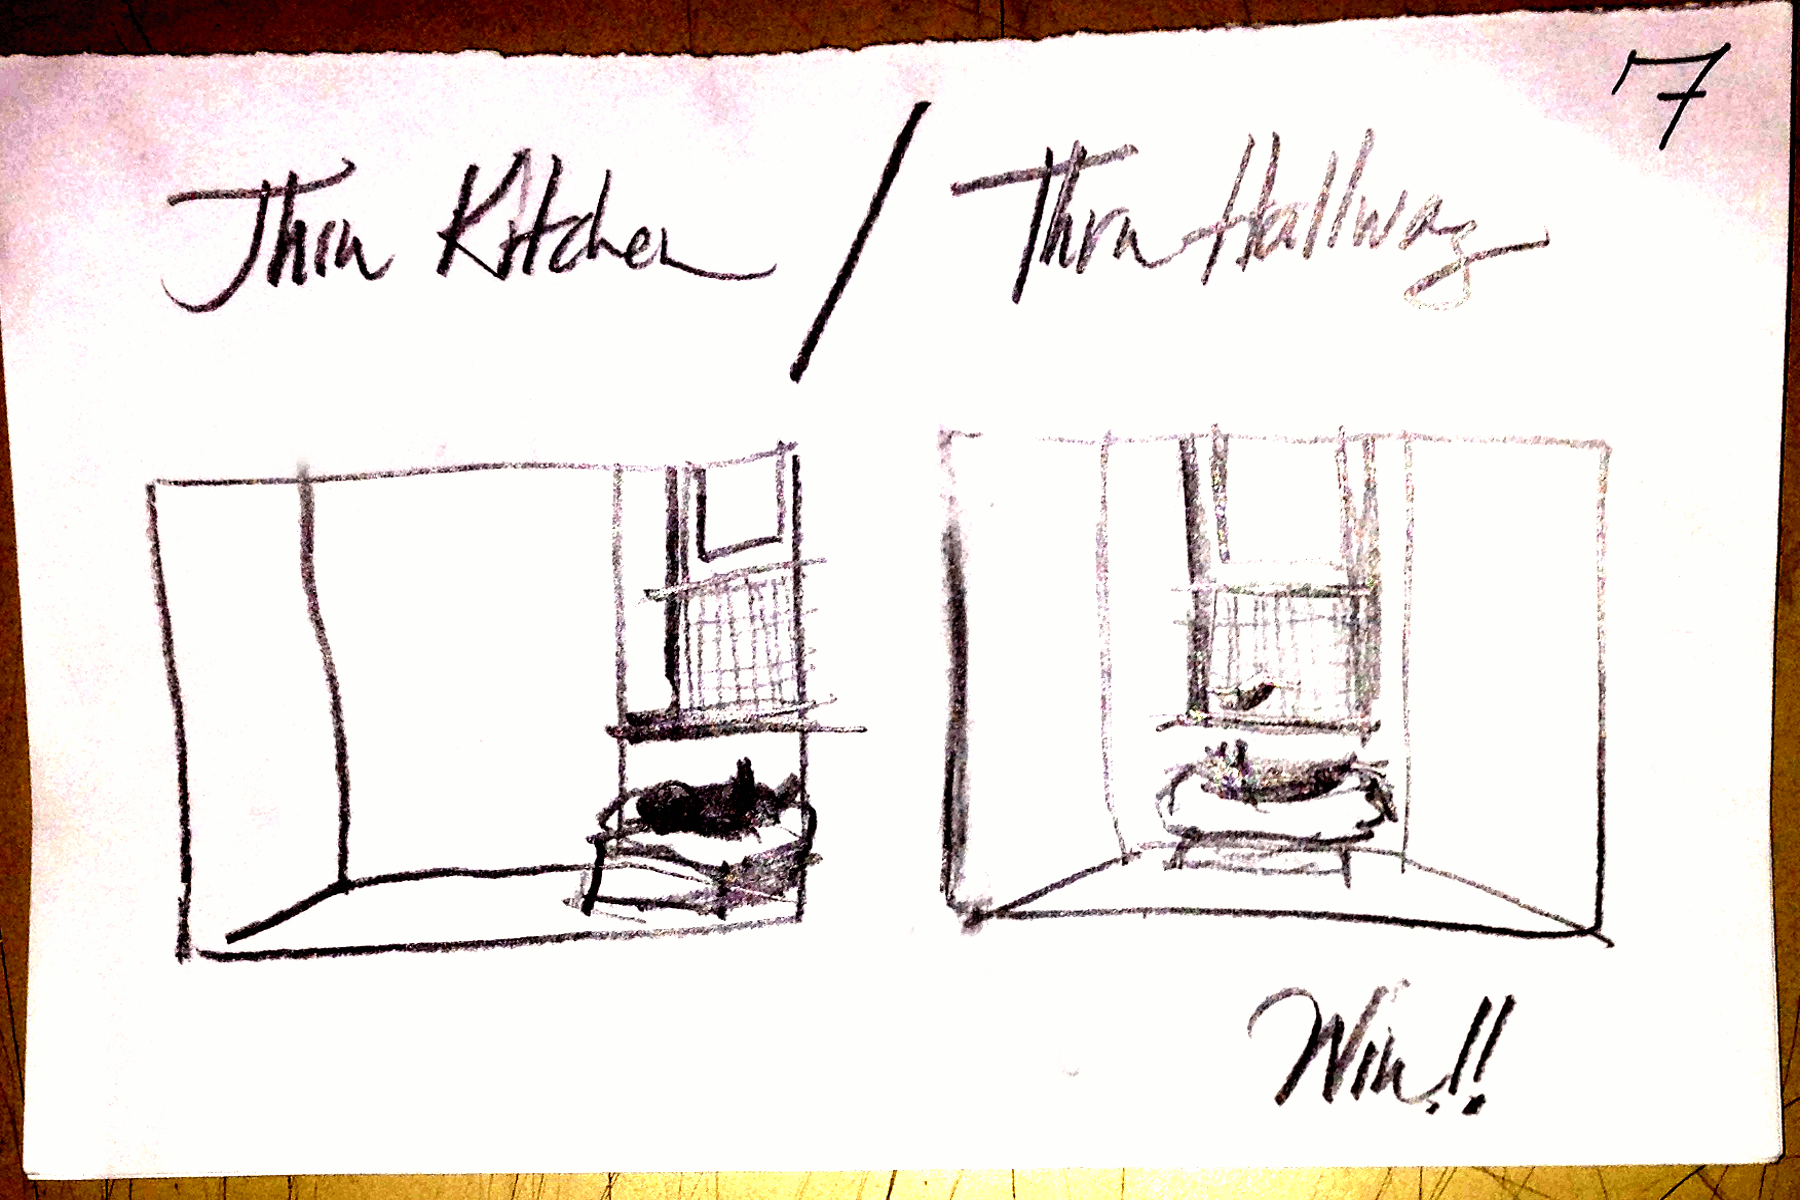 7
Thru Kitchen / Thru Hallway
Win!!